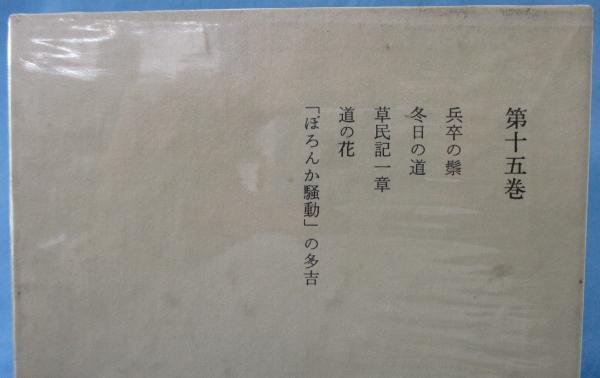 第十五巻
兵卒の鬃
冬日の道
草民記一章
道の花
「ぽろんか騒動」の多吉